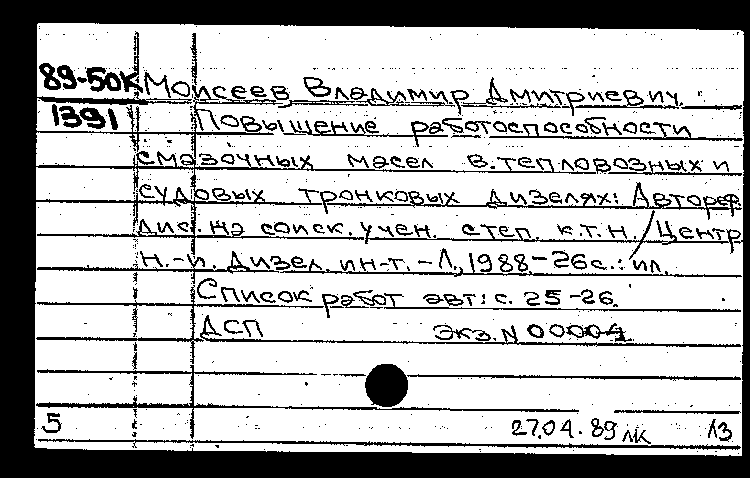 89-50К Моисеев Владимир Дмитриевич.
1391 Повышение работоспособности
смазочных масел в тепловозных и
судовых тронковых дизелях: Автореф.
дис. на соиск. учен. степ. к.т.н. / Центр.
н.-и. дизел. ин-т. - Л., 1988 - 26 с.: ил.
Список работ авт: с. 25-26.
ДСП экз. N 00004
5 27.04.89 лк 13